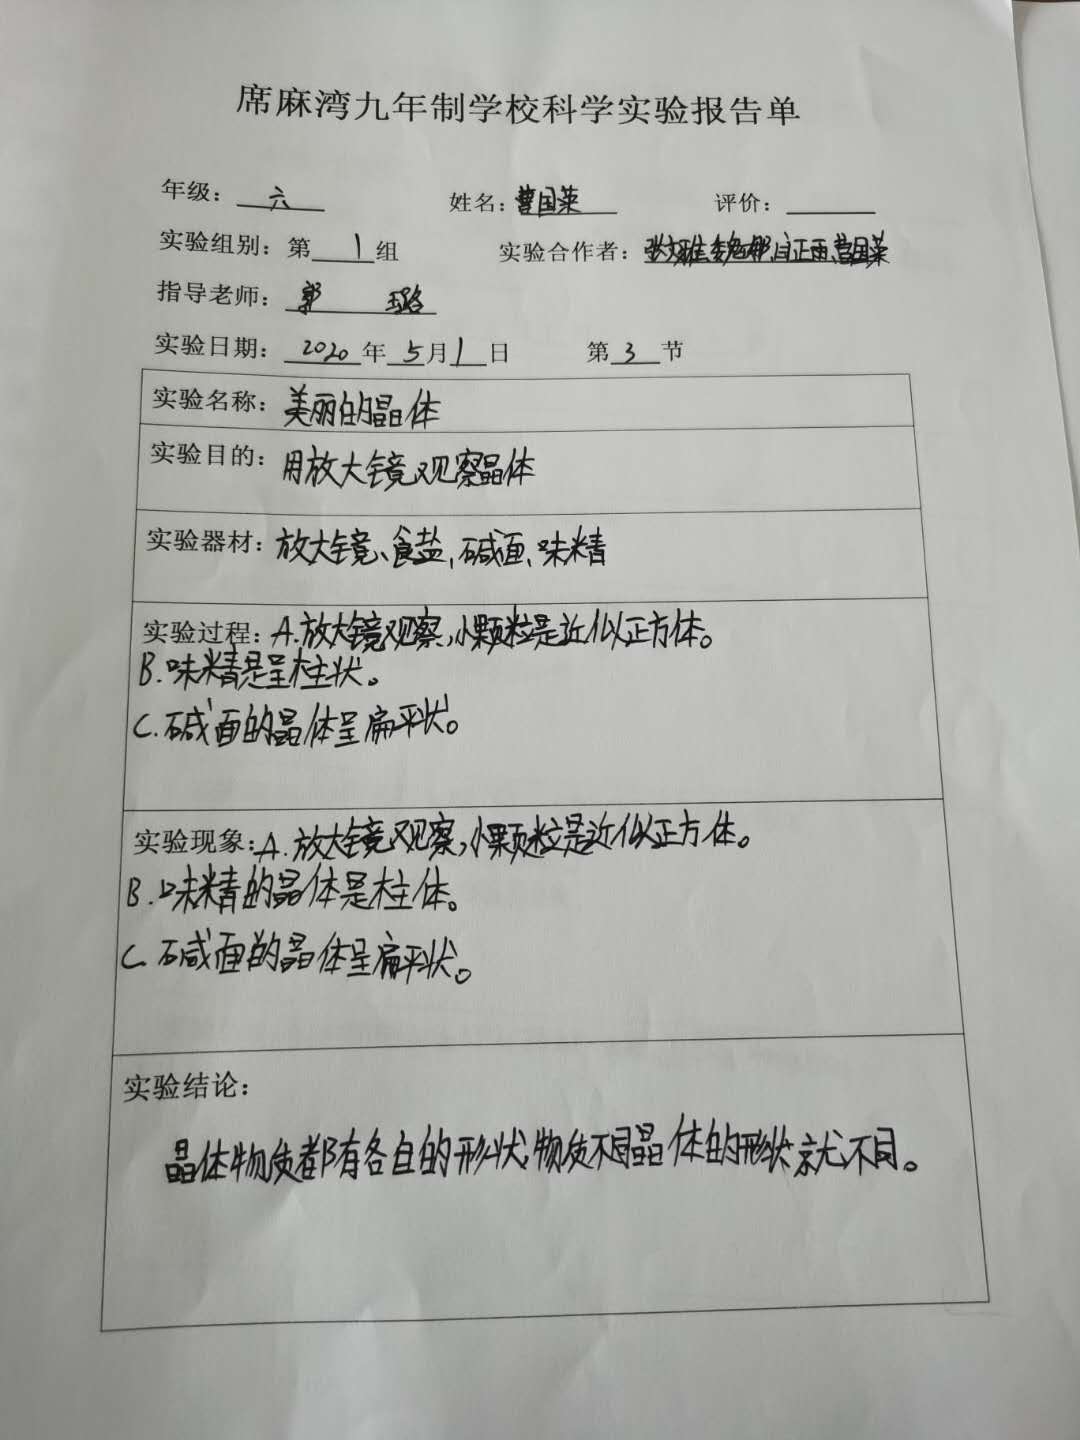 席麻湾九年制学校科学实验报告单
年级：六 姓名：曹国荣 评价：
实验组别：第1组 实验合作者：
指导老师：郭 璐
实验日期：2020年5月1日 第3节
实验名称：美丽的晶体
实验目的：用放大镜观察晶体
实验器材：放大镜、食盐，碱面、味精
实验过程：A.放大镜观察，小颗粒是近似正方体。
B.味精是呈柱状。
C.碱面的晶体呈扁平状。
实验现象：A.放大镜观察，小颗粒是近似正方体。
B.味精的晶体是柱体。
C.碱面的晶体呈扁平状。
实验结论：
晶体物质都有各自的形状，物质不同晶体的形状就不同。